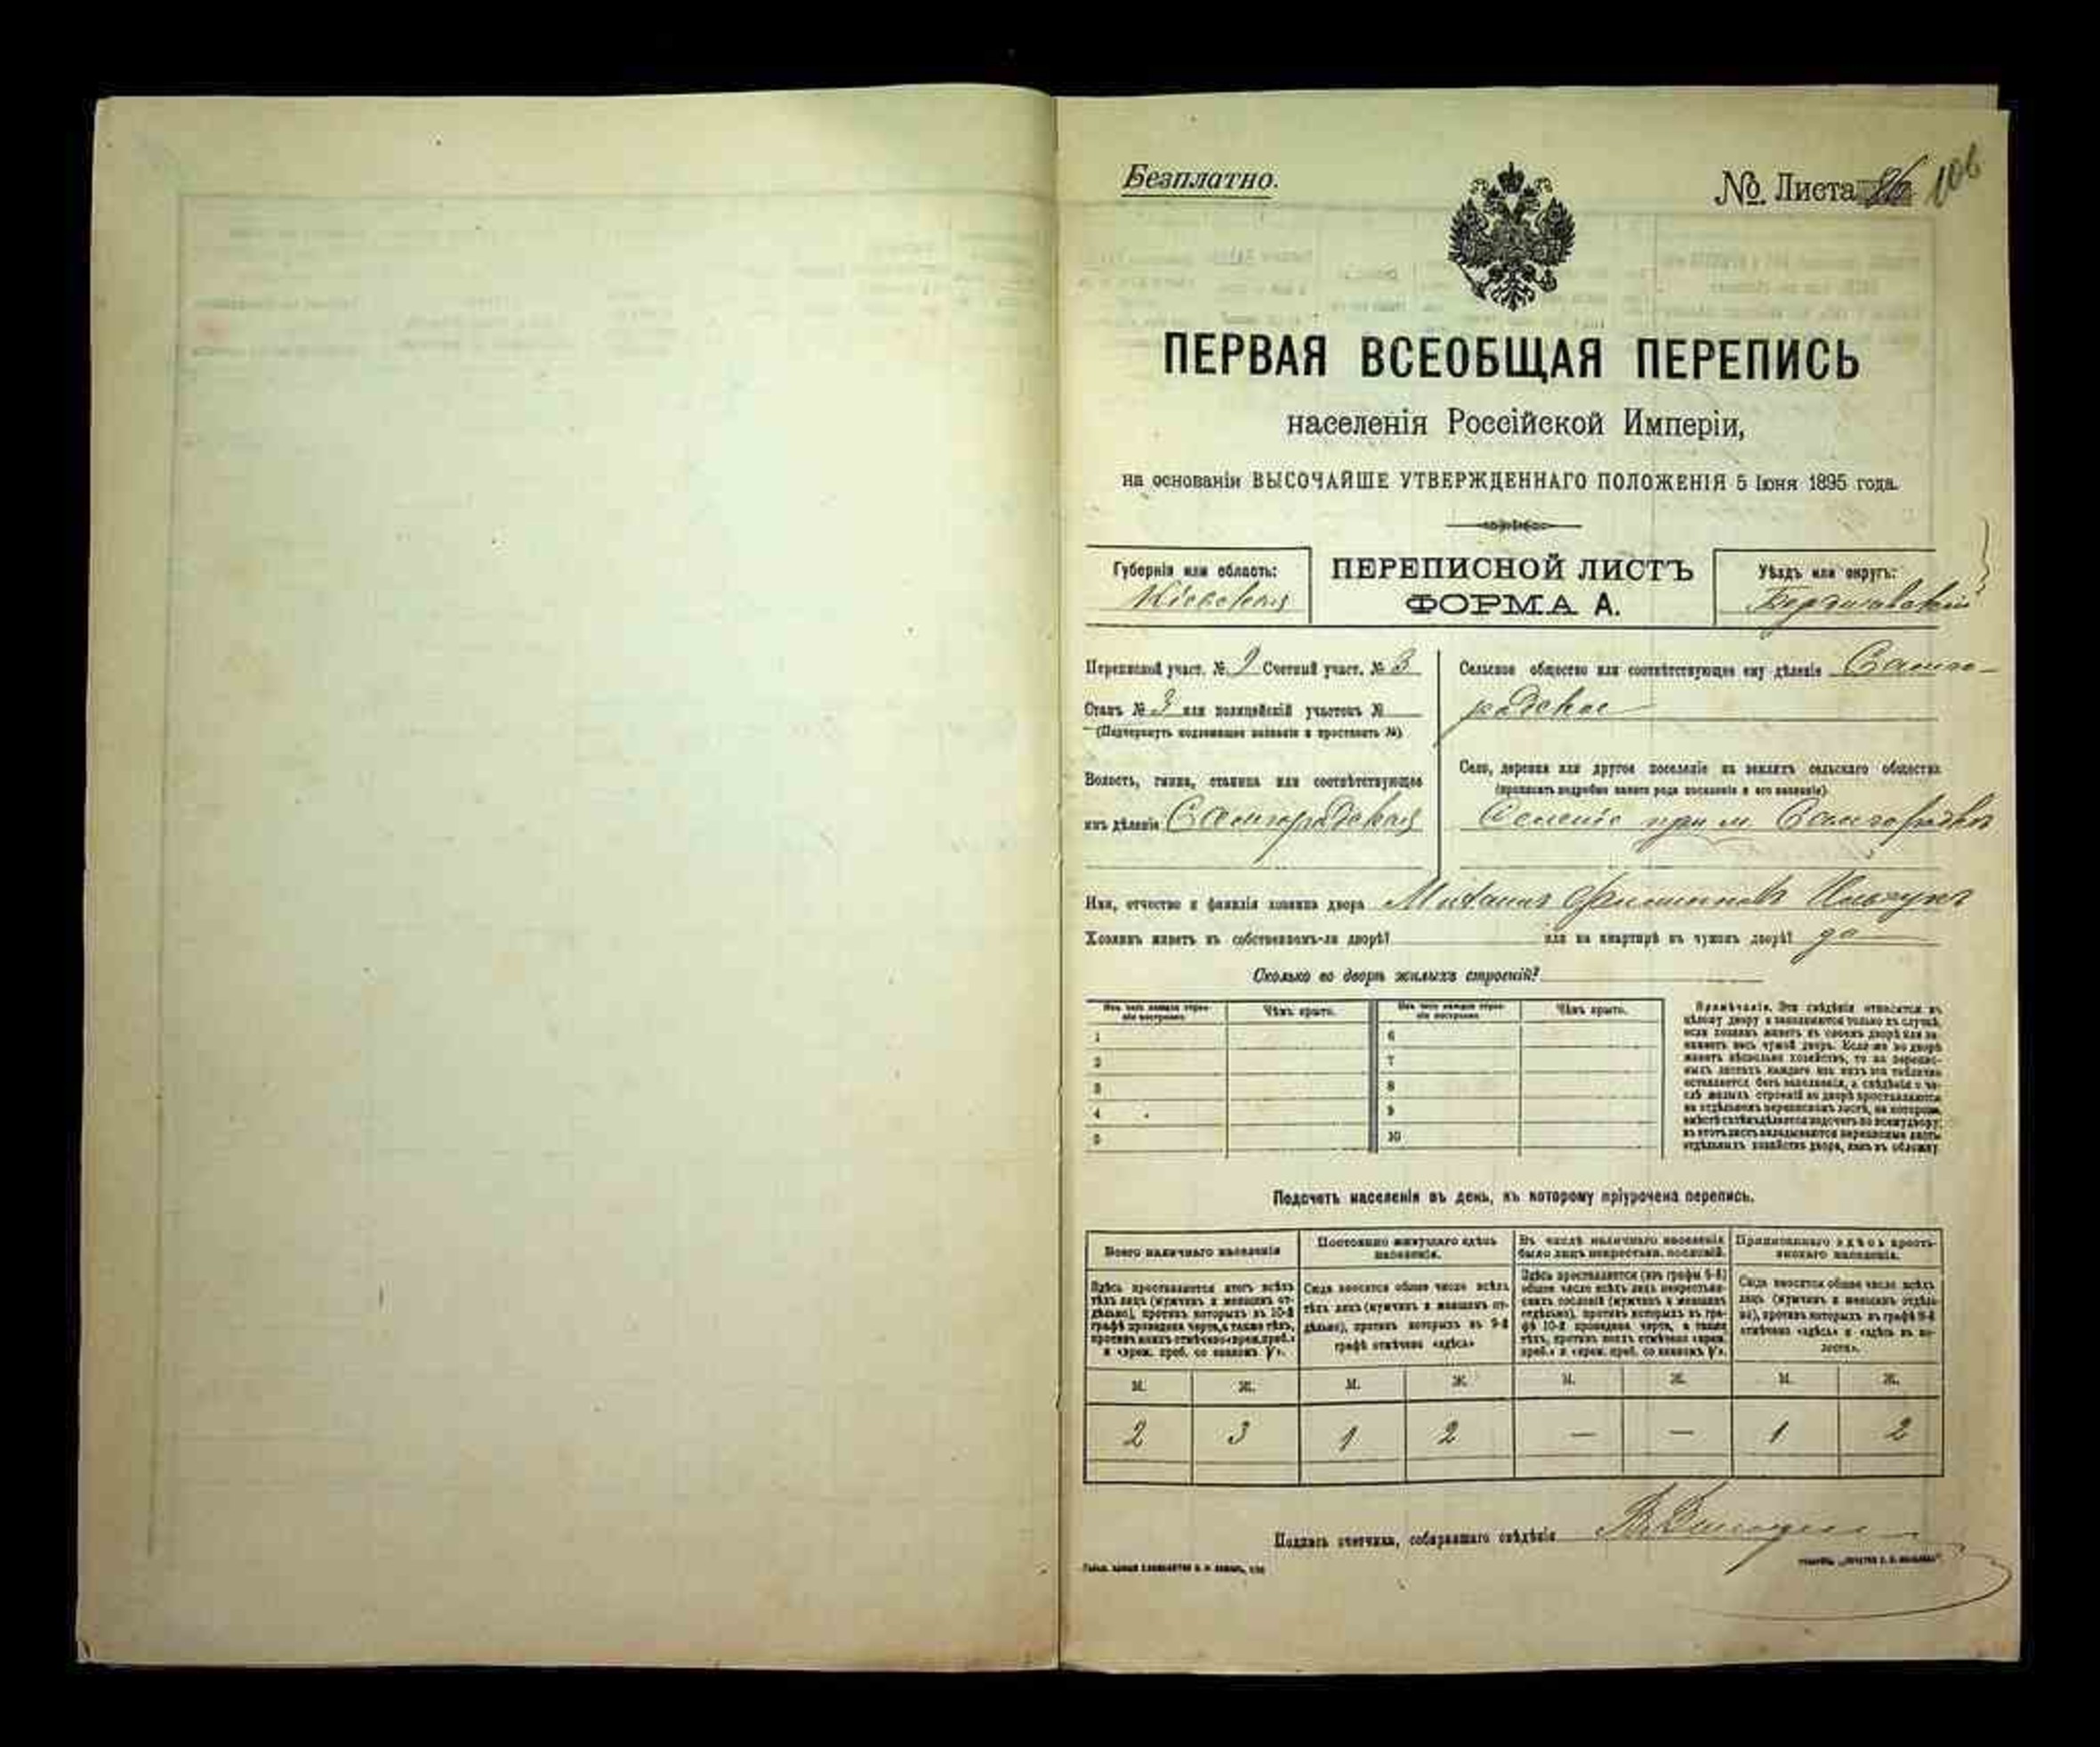 Безплатно.
№ Листа 106
ПЕРВАЯ ВСЕОБЩАЯ ПЕРЕПИСЬ
населенія Россійской Имперіи,
на основаніи ВЫСОЧАЙШЕ УТВЕРЖДЕННАГО ПОЛОЖЕНІЯ 5 Іюня 1895 года.
Губернія или область:
Кіевская
ПЕРЕПИСНОЙ ЛИСТЪ
ФОРМА А.
Уѣздъ или округъ:
Бердичевскій
Переписной участ. № 9 Счетный участ. № 3
Станъ № 3 или полицейскій участокъ №
(Подчеркнуть подлежащее названіе и проставить №)
Волость, гмина, станица или соотвѣтствующее
имъ дѣленіе Самгородская
Сельское общество или соотвѣтствующее ему дѣленіе Самго-
родское
Село, деревня или другое поселеніе на земляхъ сельскаго общества
(прописать подробно какого рода поселеніе и его названіе)
Селеніе при м. Самгородкѣ
Имя, отчество и фамилія хозяина двора
Хозяинъ живетъ въ собственномъ-ли дворѣ? или на квартирѣ въ чужомъ дворѣ? да
Сколько во дворѣ жилыхъ строеній?
Изъ чего каждое строе-
ніе построено.
Чѣмъ крыто.
Изъ чего каждое строе-
ніе построено.
Чѣмъ крыто.
1 6
2 7
3 8
4 9
5 10
Примѣчаніе. Эти свѣдѣнія относятся къ
цѣлому двору и заполняются только въ случаѣ,
если хозяинъ живетъ въ своемъ дворѣ или за-
нимаетъ весь чужой дворъ. Если же во дворѣ
имѣетъ нѣсколько хозяйствъ, то на перепис-
ныхъ листахъ каждаго изъ нихъ эта табличка
оставляется безъ заполненія, а свѣдѣнія о чи-
слѣ жилыхъ строеній во дворѣ проставляются
на отдѣльномъ переписномъ листѣ, на которомъ
вмѣстѣ съ тѣмъ дѣлается подсчетъ по всему двору;
въ этотъ листъ вкладываются переписные листы
отдѣльныхъ хозяйствъ двора, какъ въ обложку.
Подсчетъ населенія въ день, къ которому пріурочена перепись.
Всего наличнаго населенія
Постоянно живущаго здѣсь
населенія.
Въ числѣ наличнаго населенія
было лицъ некрестьян. сословій.
Приписаннаго здѣсь кресть-
янскаго населенія.
Здѣсь проставляется итогъ всѣхъ
тѣхъ лицъ (мужчинъ и женщинъ от-
дѣльно), противъ которыхъ въ 10-й
графѣ проведена черта, а также тѣхъ,
противъ коихъ отмѣчено «врем. преб.»
и «врем. преб. со знакомъ V».
Сюда вносится общее число всѣхъ
тѣхъ лицъ (мужчинъ и женщинъ от-
дѣльно), противъ которыхъ въ 9-й
графѣ отмѣчено «здѣсь»
Здѣсь проставляется (изъ графы 6-й)
общее число всѣхъ лицъ некрестьян-
скихъ сословій (мужчинъ и женщинъ
отдѣльно), противъ которыхъ въ гра-
фѣ 10-й проведена черта, а также
тѣхъ, противъ коихъ отмѣчено «врем.
преб.» и «врем. преб. со знакомъ V».
Сюда вносится общее число всѣхъ
лицъ (мужчинъ и женщинъ отдѣль-
но), противъ которыхъ въ графѣ 8-й
отмѣчено «здѣсь» и «здѣсь въ во-
лости».
М. Ж. М. Ж. М. Ж. М. Ж.
2 3 1 2 — — 1 2
Подпись счетчика, собиравшаго свѣдѣнія